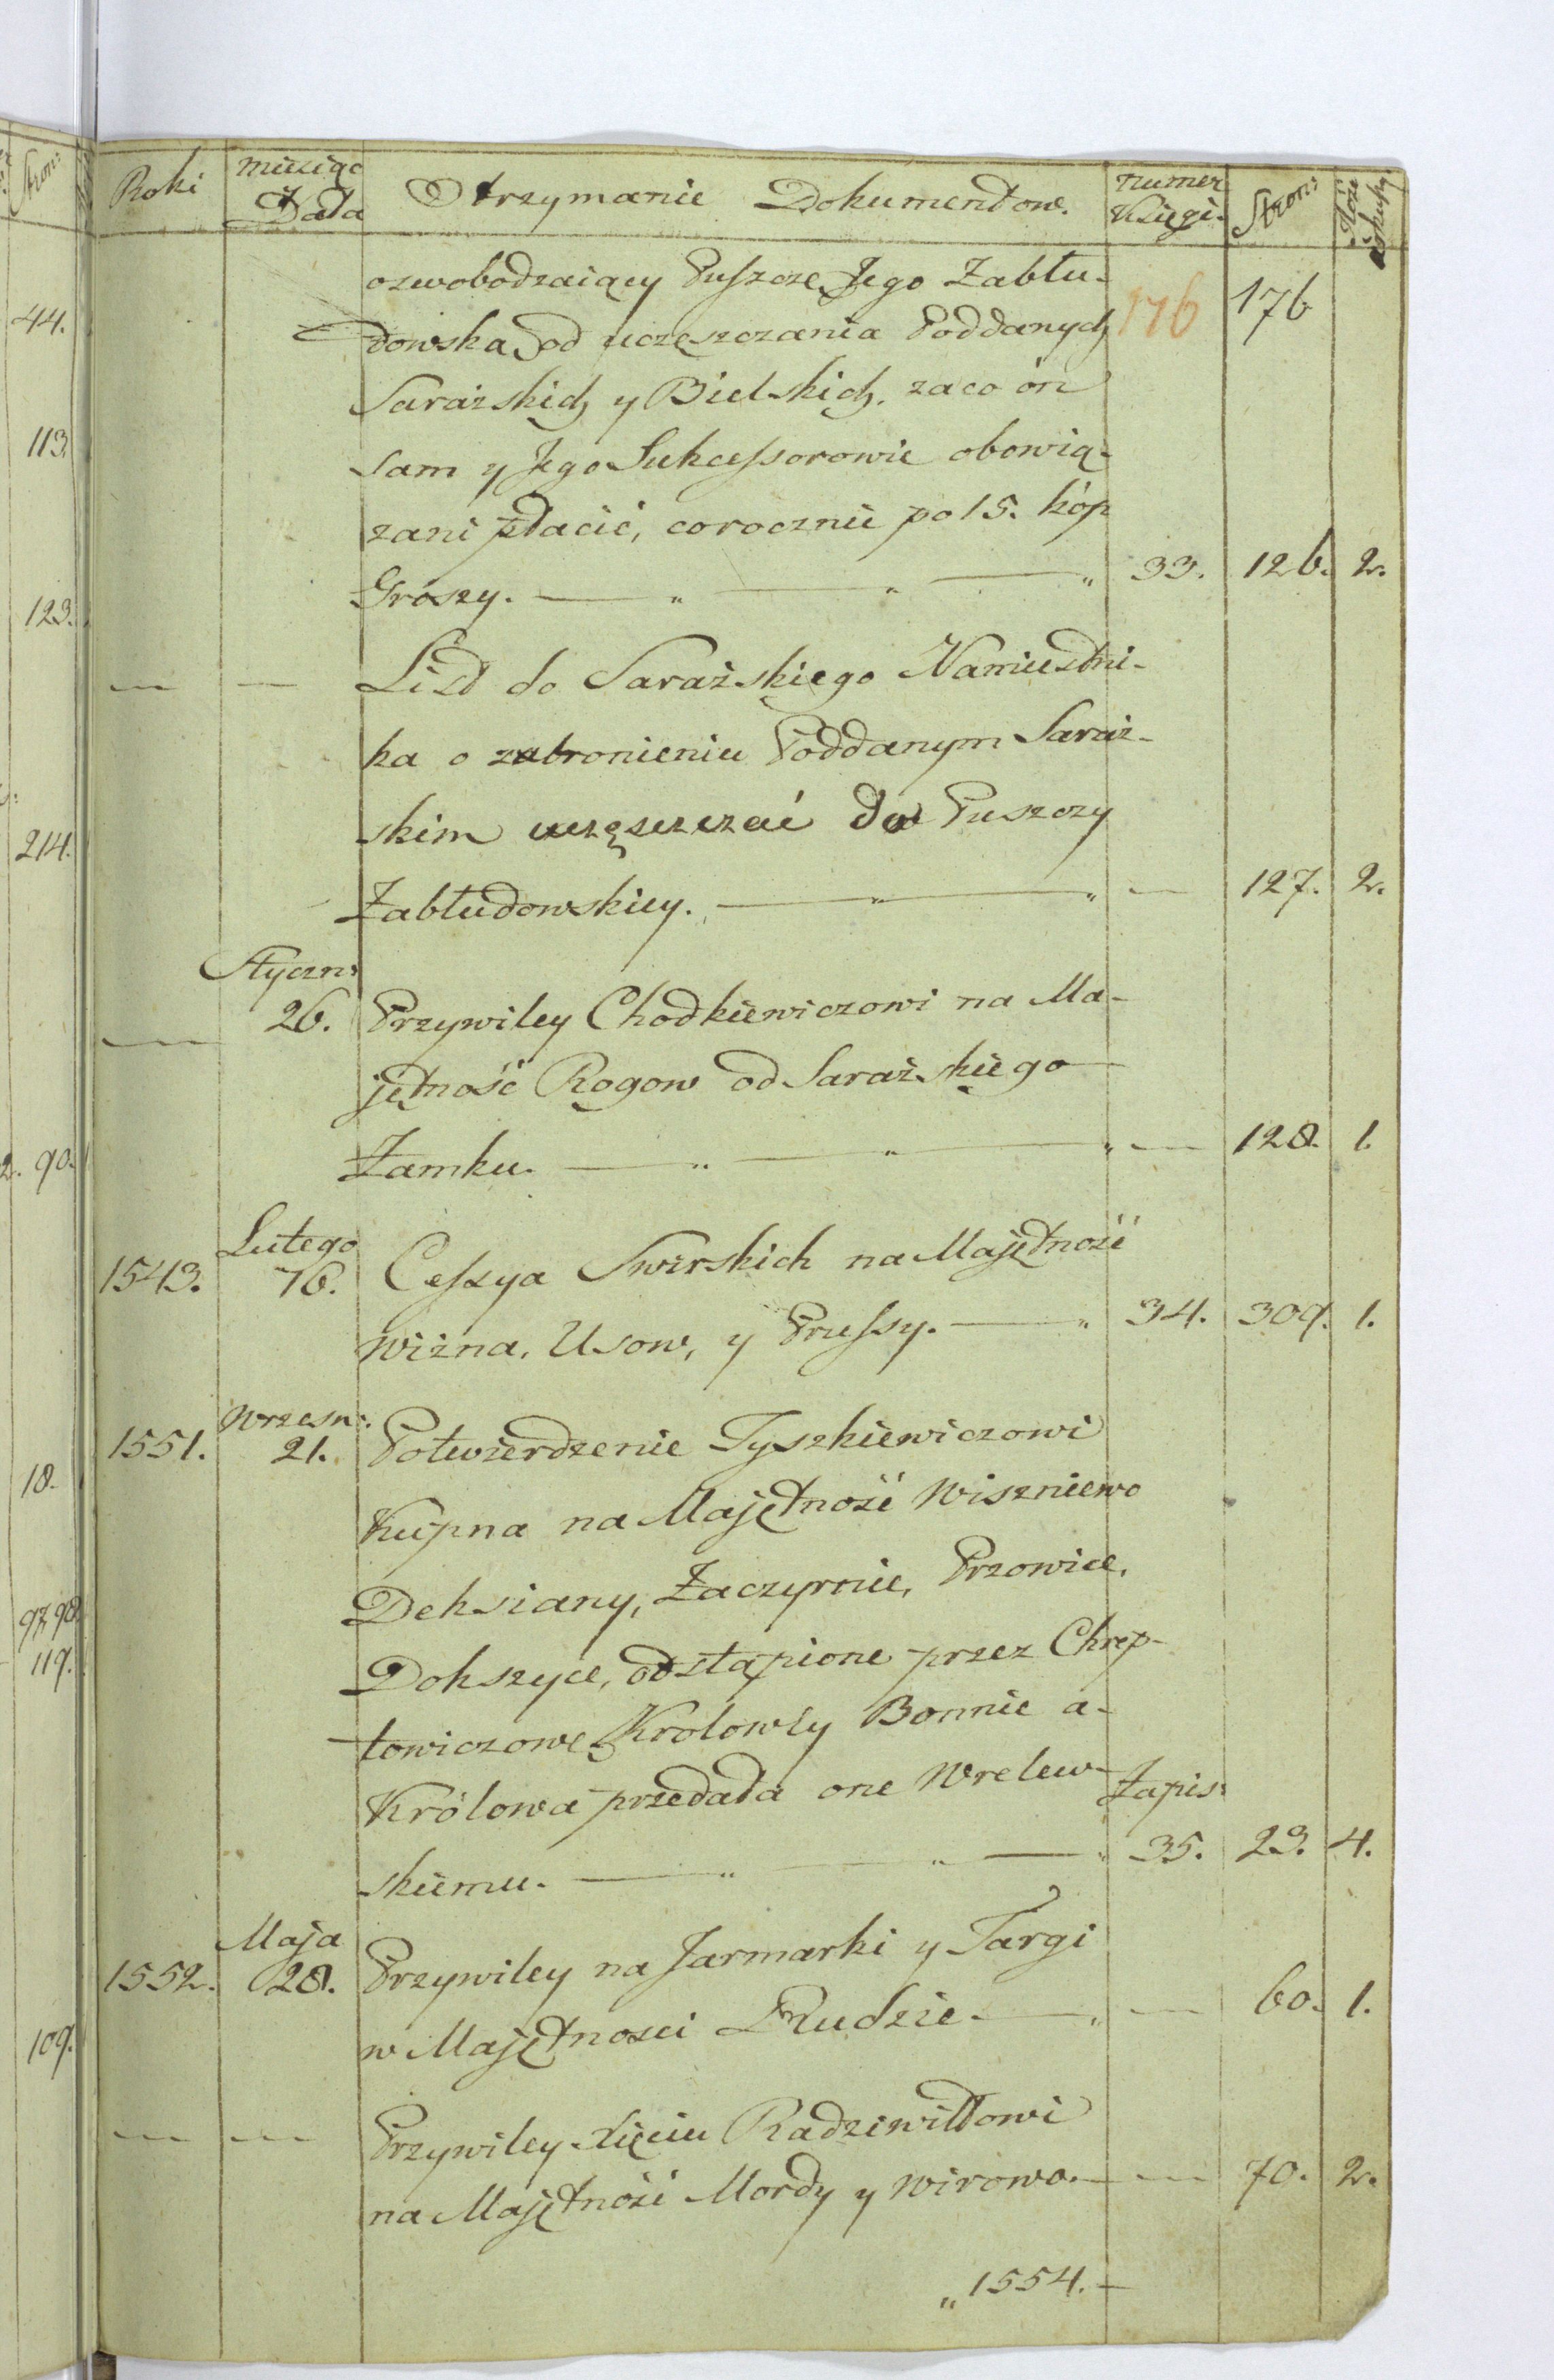 Roki miesiąc Data Otrzymanie Dokumentow. numer Księgi. Stron:
oswobodzaiący Puszczę Jego Zabłu-
dowską od uczęszczania Poddanych 176 176
Sarazskich y Bielskich. zaco ón
sam y Jego Sukcessorowie obowią-
zani płacić, corocznie po 15. kóp
Groszy. — „ — „ — „ 33. 126. 2.
— — List do Sarażskiego Namiestni-
ka o zabronieniu Poddanym Saraz-
skim uczęszczać do Puszczy
Zabłudowskiey. — „ — „ — 127. 2.
Styczn:
— 26. Przywiley Chodkiewiczowi na Ma-
jętność Rogow od Sarażskiego
Zamku. — „ — „ — „ — 128. 1.
Lutego
1543. 16. Cessya Swirskich na Majętność
Wizna, Usow, y Prussy. — „ 34. 309. 1.
Wrzesn:
1551. 21. Potwierdzenie Tyszkiewiczowi
Kupna na Majętność Wiszniewo
Deksiany, Zaczyrnie, Przowice,
Dokszyce, odstąpione przez Chrep-
towiczowę Krolowey Bonnie a-
Królowa przedała one Wrelew- Zapis:
skiemu. — „ — „ — „ 35. 23. 4.
Maja
1552. 28. Przywiley na Jarmarki y Targi
w Majętnosci Rudzie. — „ — 60. 1.
— — Przywiley Xięciu Radziwiłłowi
na Majętność Mordy y Wirowo. — — 70. 2.
„ 1554. —
44.
113.
123.
214.
2. 90.
18.
97, 98.
119.
109.